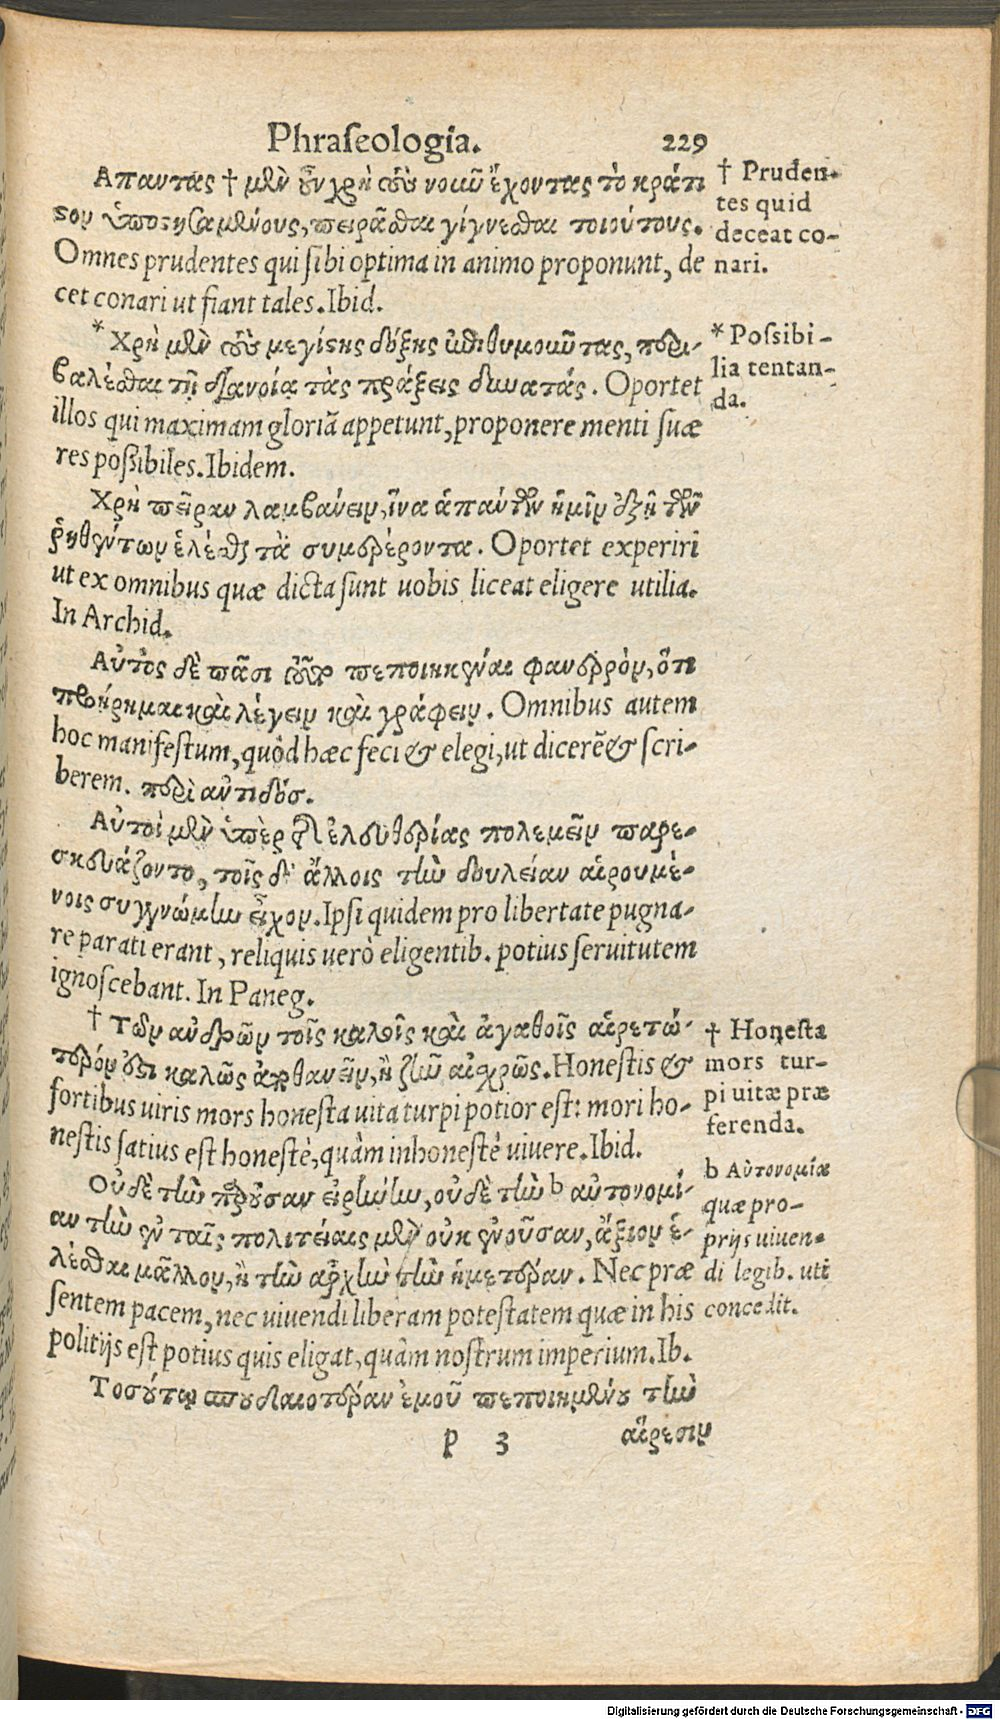 Phraſeologia. 229
Απαντας † μὲν οὖν χρὴ τοὺς νοῦν ἔχοντας τὸ κράτι
στον ὑποστησαμένους, πειρᾶσθαι γίγνεσθαι τοιούτους.
Omnes prudentes qui ſibi optima in animo proponunt, de
cet conari ut fiant tales. Ibid.
* Χρὴ μὲν τοὺς μεγίστης δόξης ἐπιθυμοῦντας, περι-
βαλέσθαι τῇ διανοίᾳ τὰς πράξεις δυνατάς. Oportet
illos qui maximam gloriã appetunt, proponere menti ſuæ
res poſsibiles. Ibidem.
Χρὴ πεῖραν λαμβάνειν, ἵνα ἁπάντων ἡμῖν ἐξῇ τῶν
ῥηθέντων ἑλέσθαι τὰ συμφέροντα. Oportet experiri
ut ex omnibus quæ dicta ſunt uobis liceat eligere utilia.
In Archid.
Αὐτὸς δὲ πᾶσι πεποιηκέναι φανερὸν, ὅτι
προῄρημαι καὶ λέγειν καὶ γράφειν. Omnibus autem
hoc manifeſtum, quòd hæc feci & elegi, ut dicerẽ & ſcri-
berem. περὶ αντιδόσ.
Αὐτοὶ μὲν ὑπὲρ τῆς ἐλευθερίας πολεμεῖν παρε-
σκευάζοντο, τοῖς δ' ἄλλοις τὴν δουλείαν αἱρουμέ-
νοις συγγνώμην εἶχον. Ipſi quidem pro libertate pugna-
re parati erant, reliquis uerò eligentib. potius ſeruitutem
ignoſcebant. In Paneg.
† Τῶν ανδρῶν τοῖς καλοῖς καὶ ἀγαθοῖς αἱρετώ-
τερόν ἐστι καλῶς ἀποθανεῖν, ἢ ζῆν αἰσχρῶς. Honeſtis &
fortibus uiris mors honeſta uita turpi potior eſt: mori ho-
neſtis ſatius eſt honeſtè, quàm inhoneſtè uiuere. Ibid.
Οὐδὲ τὴν παροῦσαν εἰρήνην, οὐδὲ τὴν b αὐτονομί-
αν τὴν ἐν ταῖς πολιτείαις μὲν οὐκ ἐνοῦσαν, ἄξιον ἑ-
λέσθαι μᾶλλον, ἢ τὴν ἀρχὴν τὴν ἡμετέραν. Nec præ
ſentem pacem, nec uiuendi liberam poteſtatem quæ in his
politijs eſt potius quis eligat, quàm noſtrum imperium. Ib.
Τοσούτῳ σπουδαιοτέραν ἐμοῦ πεποιημένου τὴν
p 3 αἵρεσιν
† Pruden-
tes quid
deceat co-
nari.
* Poſsibi-
lia tentan-
da.
† Honeſta
mors tur-
pi uitæ præ
ferenda.
b Αὐτονομίæ
quæ pro-
prijs uiuen-
di legib. uti
concedit.
Digitalisierung gefördert durch die Deutsche Forschungsgemeinschaft - DFG